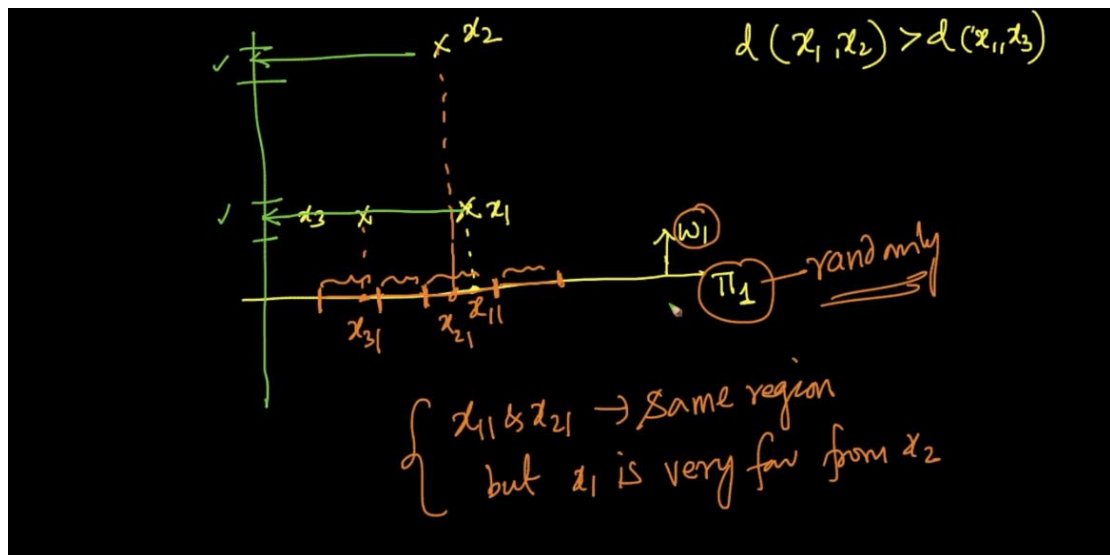 x₂
d(x₁,x₂)>d(x₁,x₃)
x₃ x₁
w₁
π₁ randomly
x₃₁ x₂₁ x₁₁
x₁₁ & x₂₁ → same region
but x₁ is very far from x₂